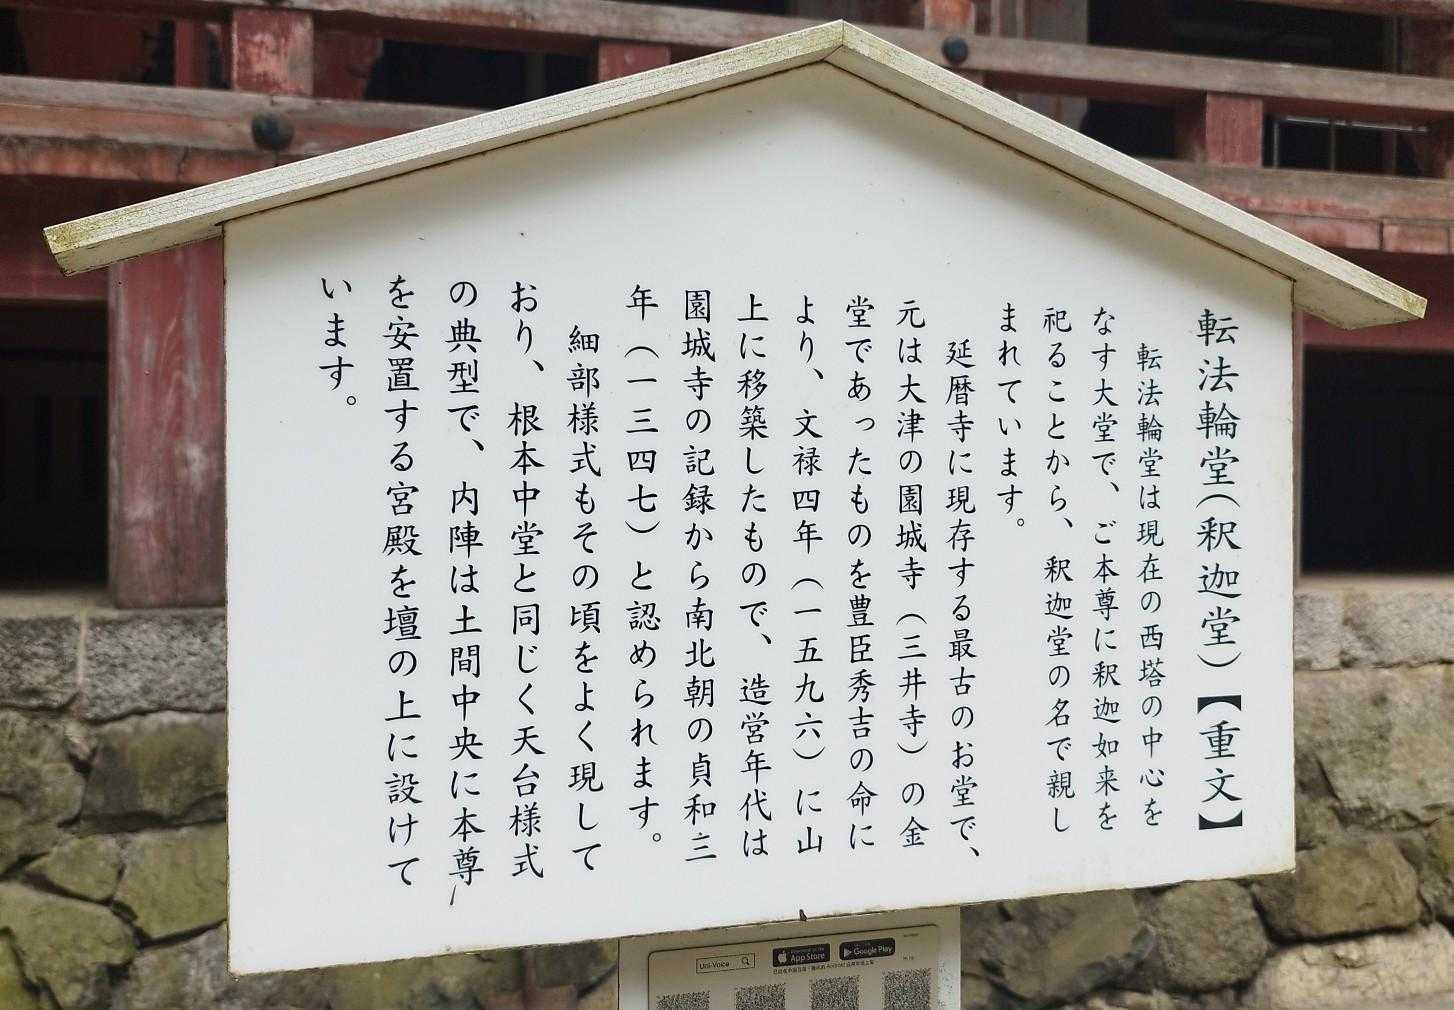 転法輪堂（釈迦堂）【重文】
転法輪堂は現在の西塔の中心を
なす大堂で、ご本尊に釈迦如来を
祀ることから、釈迦堂の名で親し
まれています。
延暦寺に現存する最古のお堂で、
元は大津の園城寺（三井寺）の金
堂であったものを豊臣秀吉の命に
より、文禄四年（一五九六）に山
上に移築したもので、造営年代は
園城寺の記録から南北朝の貞和三
年（一三四七）と認められます。
細部様式もその頃をよく現して
おり、根本中堂と同じく天台様式
の典型で、内陣は土間中央に本尊
を安置する宮殿を壇の上に設けて
います。
Uni-Voice
App Store
Google Play